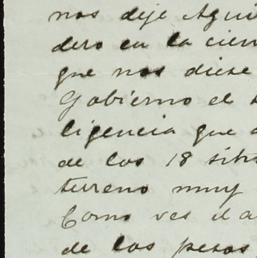 nos dije Agui
dero en la cien
que nos diese
Gobierno el
ligencia que
de los 18 sitio
terreno muy
Como ves el a
de los pesos